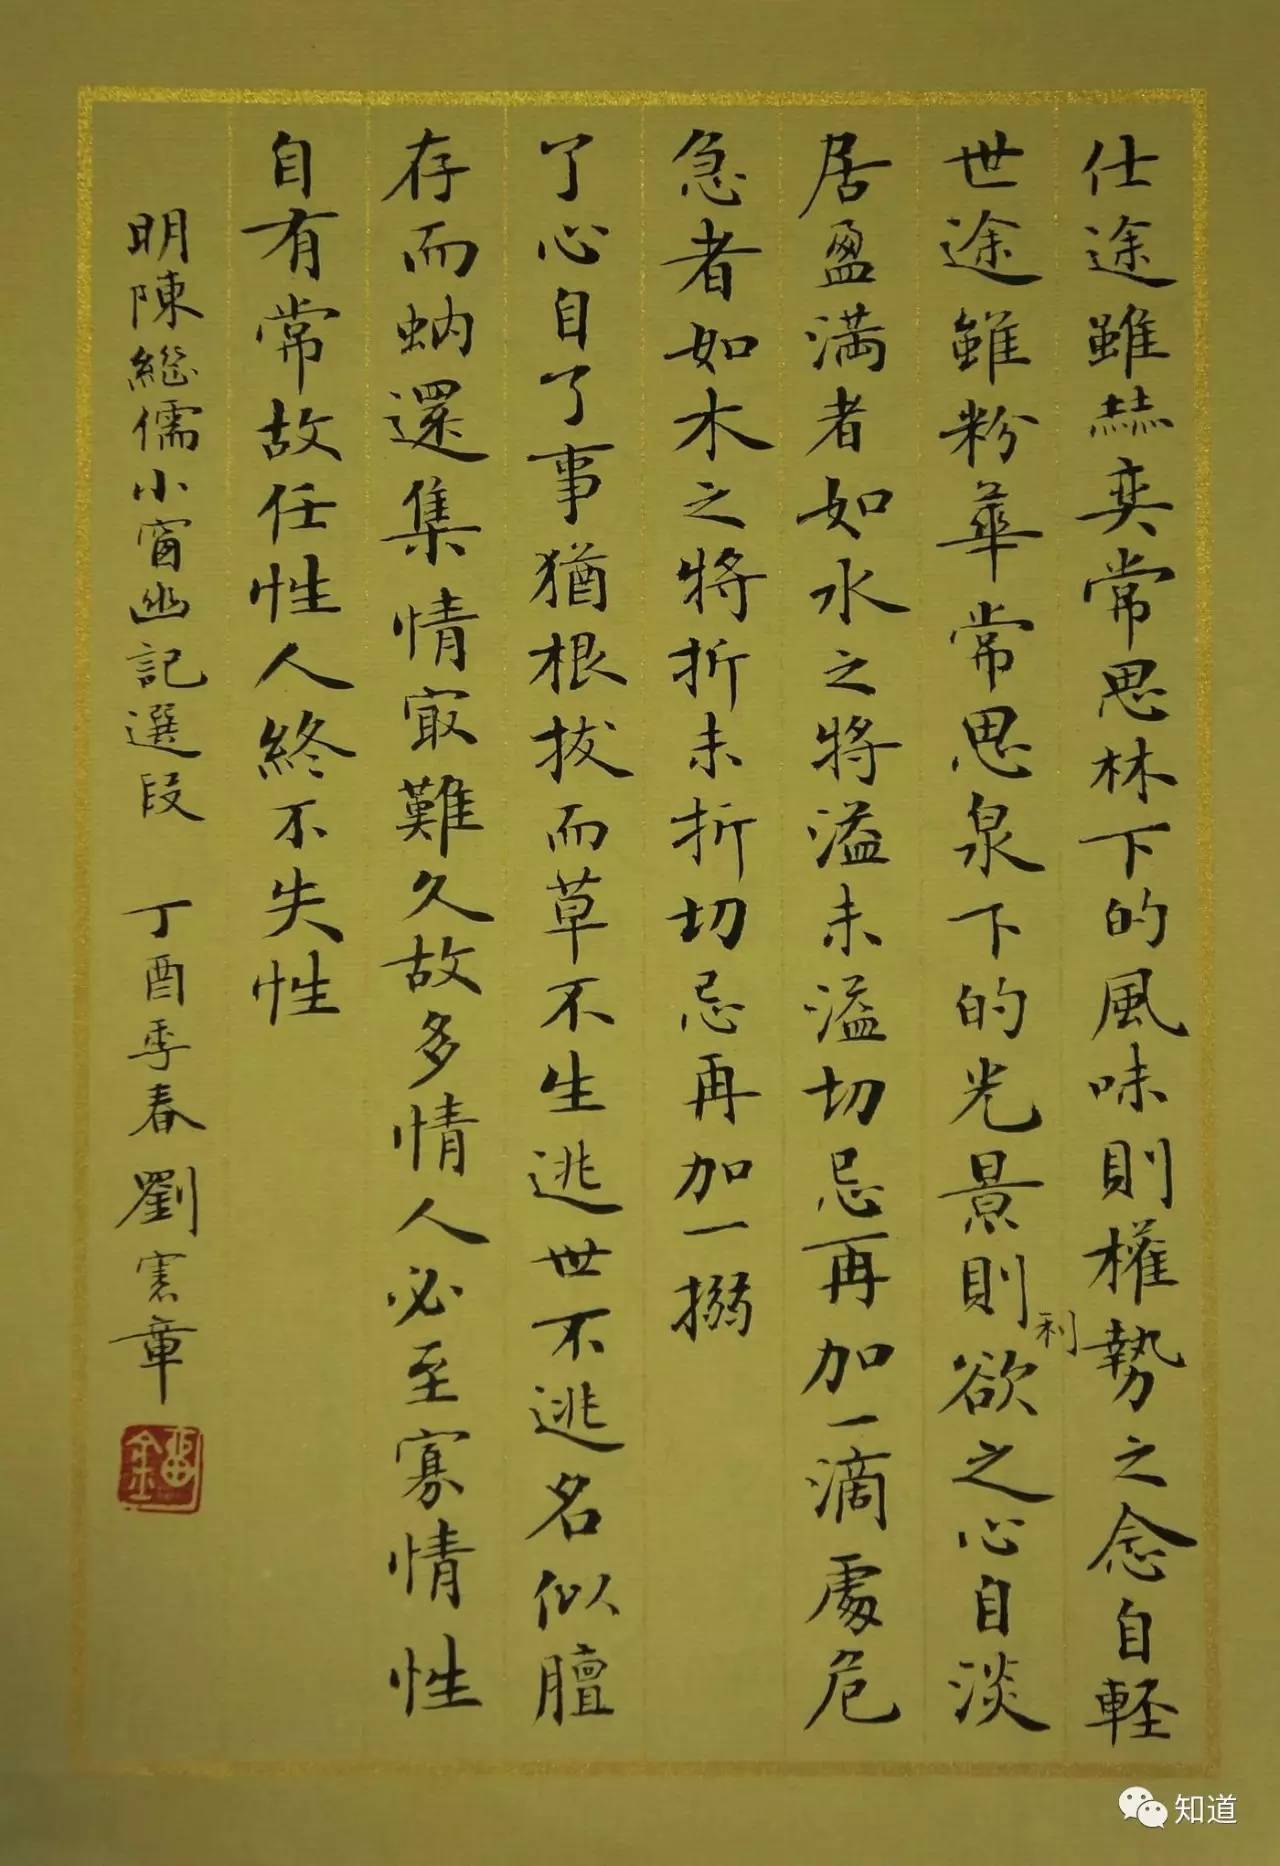 仕途雖赫奕常思林下的風味則權勢之念自輕
世途雖粉華常思泉下的光景則利欲之心自淡
居盈滿者如水之將溢未溢切忌再加一滴處危
急者如木之將折未折切忌再加一搦
了心自了事猶根拔而草不生逃世不逃名似膻
存而蚋還集情寂難久故多情人必至寡情性
自有常故任性人終不失性
明陳繼儒小窗幽記選段 丁酉季春劉憲章
知道